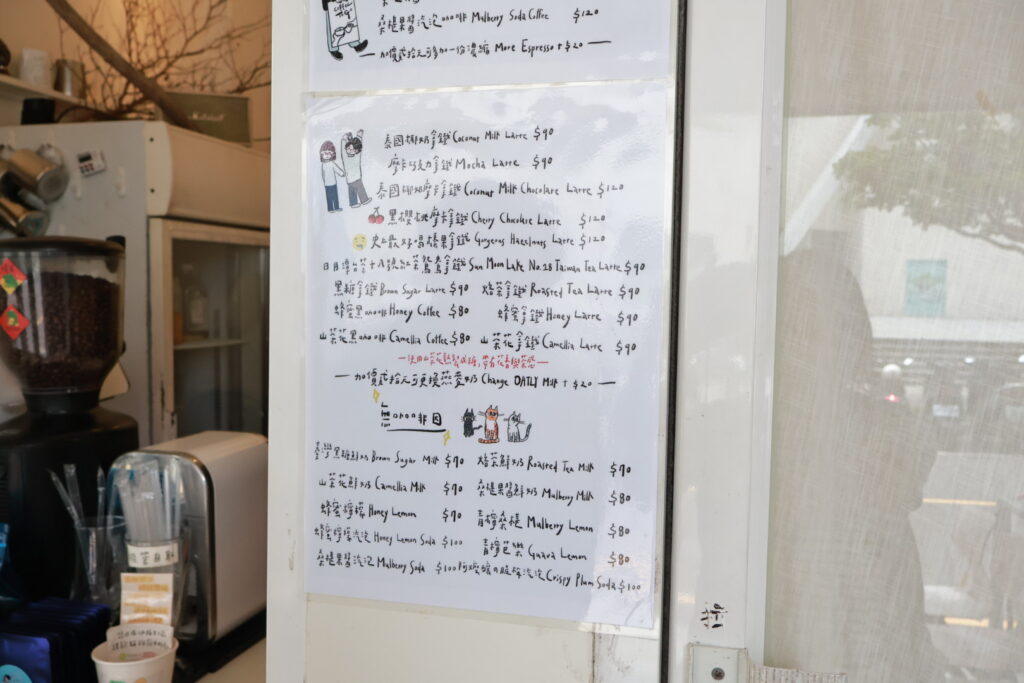 桑椹果醬汽泡咖啡 Mulberry Soda Coffee $120
加價貳拾元可多加一份濃縮 More Espresso + $20
泰國椰奶拿鐵 Coconut Milk Latte $90
摩卡巧克力拿鐵 Mocha Latte $90
泰國椰奶摩卡拿鐵 Coconut Milk Chocolate Latte $120
黑櫻桃摩卡拿鐵 Cherry Chocolate Latte $120
史上最好喝榛果拿鐵 Gorgeous Hazelnuts Latte $120
日月潭台茶十八號紅茶鴛鴦拿鐵 Sun Moon Lake No.18 Taiwan Tea Latte $90
黑糖拿鐵 Brown Sugar Latte $90 焙茶拿鐵 Roasted Tea Latte $90
蜂蜜黑咖啡 Honey Coffee $80 蜂蜜拿鐵 Honey Latte $90
山茶花黑咖啡 Camellia Coffee $80 山茶花拿鐵 Camellia Latte $90
加價貳拾元可更換燕麥奶 Change OATLY Milk + $20
非因
臺灣黑糖鮮奶 Brown Sugar Milk $70 焙茶鮮奶 Roasted Tea Milk $70
山茶花鮮奶 Camellia Milk $70 桑椹果醬鮮奶 Mulberry Milk $80
蜂蜜檸檬 Honey Lemon $70 青檸桑椹 Mulberry Lemon $80
蜂蜜檸檬汽泡 Honey Lemon Soda $100 青檸芭樂 Guava Lemon $80
桑椹果醬汽泡 Mulberry Soda $100 阿嬤醃的脆梅汽泡 Crispy Plum Soda $100
Marshall